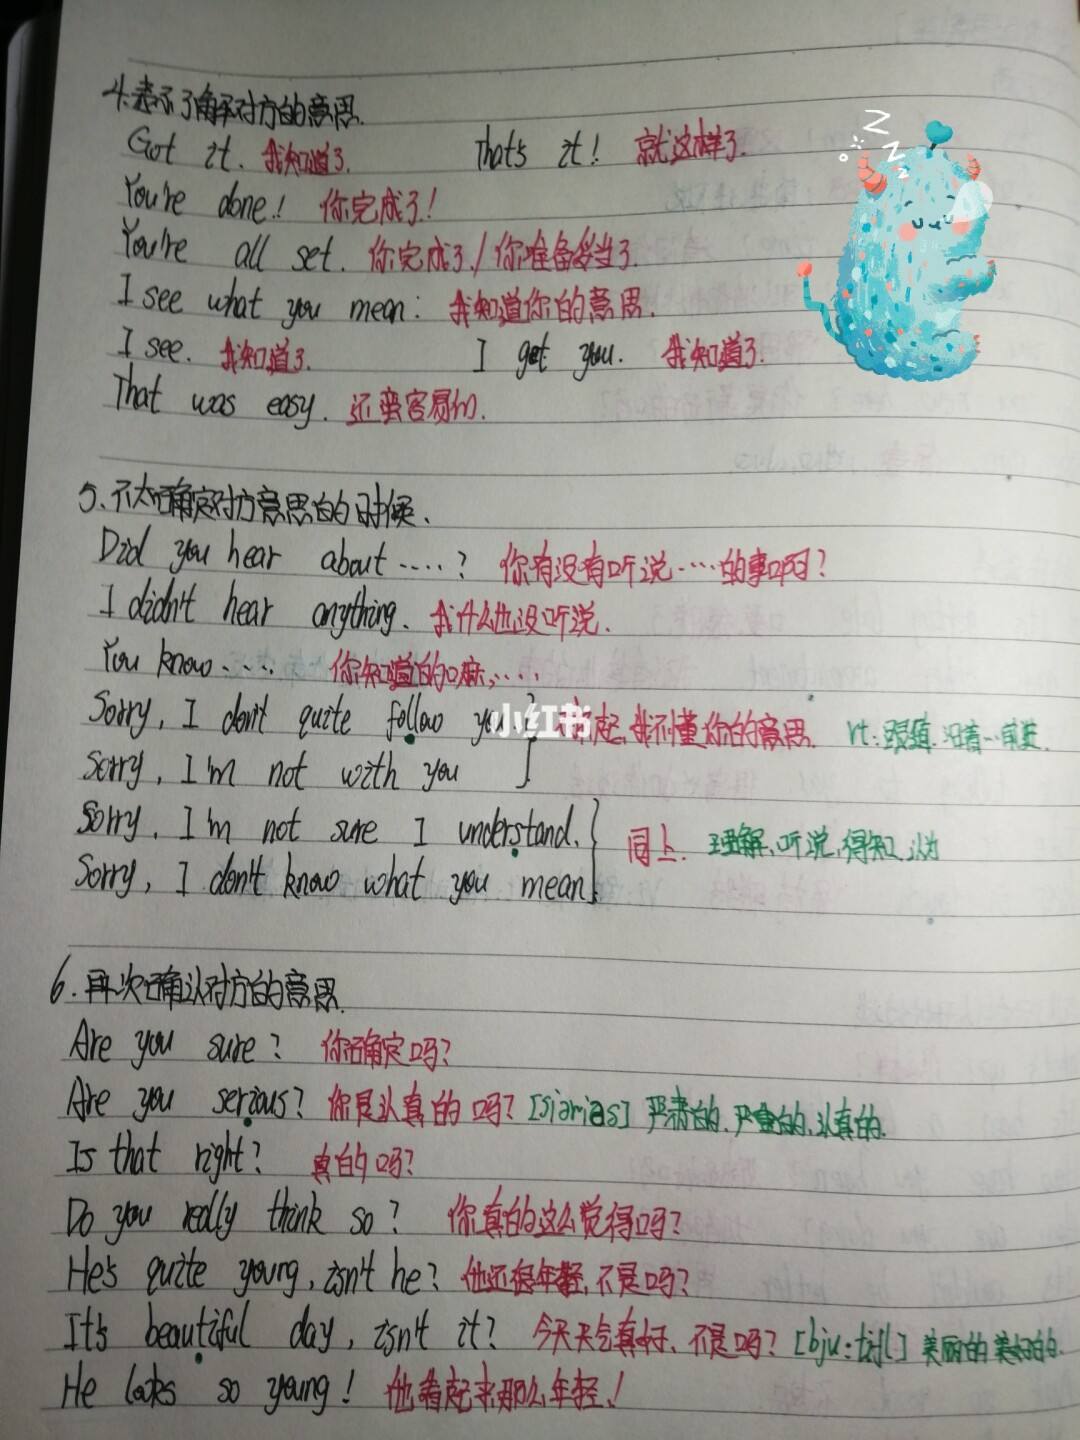 4.表示了解对方的意思.
Got it. 我知道了. That's it! 就这样了.
You're done! 你完成了!
You're all set. 你完成了/你准备妥当了.
I see what you mean: 我知道你的意思.
I see. 我知道了. I get you. 我知道了.
That was easy. 还蛮容易的.
5.不太确定对方意思的时候.
Did you hear about.....? 你有没有听说.....的事啊?
I didn't hear anything. 我什么也没听说.
You know..... 你知道的嘛,....
Sorry, I don't quite follow you 起,我不懂你的意思. vt:跟随.沿着…前进.
小红书
Sorry, I'm not with you
Sorry, I'm not sure I understand. 同上. 理解、听说,得知,认为
Sorry, I don't know what you mean.
6.再次确认对方的意思.
Are you sure? 你确定吗?
Are you serious? 你是认真的吗? [siəriəs] 严肃的.严重的.认真的.
Is that right? 真的吗?
Do you really think so? 你真的这么觉得吗?
He's quite young, isn't he? 他还很年轻,不是吗?
It's beautiful day, isn't it? 今天天气真好、不是吗? [bju:tifl] 美丽的美好的.
He looks so young! 他看起来那么年轻!
Z
Z
Z